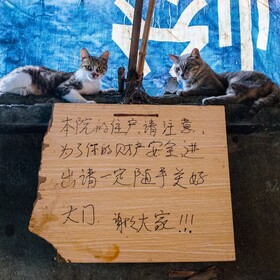 本院的住户,请注意,
为了你的财产安全进
出请一定随手关好
大门. 谢谢大家!!!